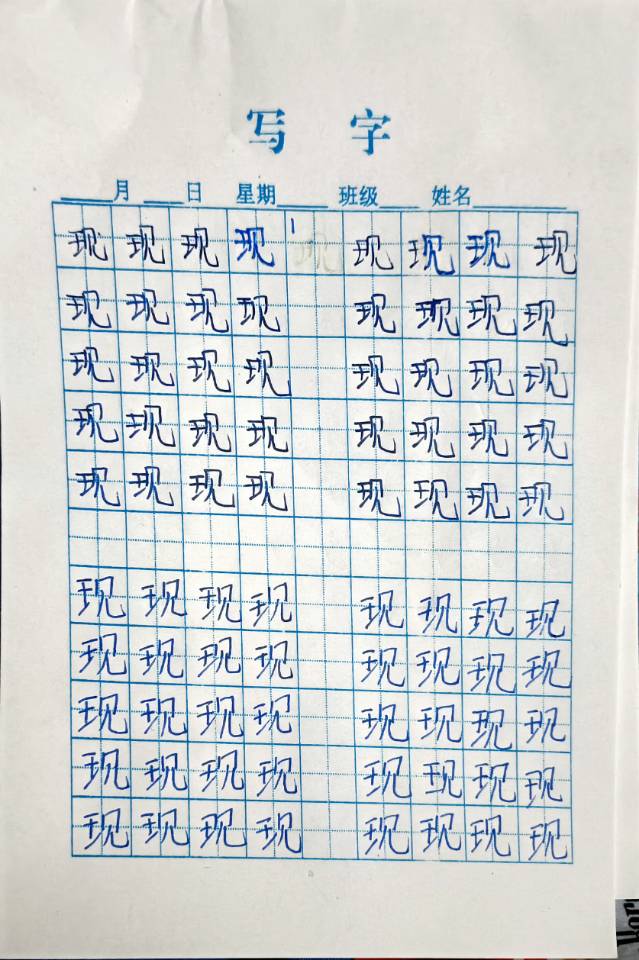 写 字
____月 ____日 星期_____ 班级____ 姓名_________
现 现 现 现 现 现 现 现
现 现 现 现 现 现 现 现
现 现 现 现 现 现 现 现
现 现 现 现 现 现 现 现
现 现 现 现 现 现 现 现
现 现 现 现 现 现 现 现
现 现 现 现 现 现 现 现
现 现 现 现 现 现 现 现
现 现 现 现 现 现 现 现
现 现 现 现 现 现 现 现